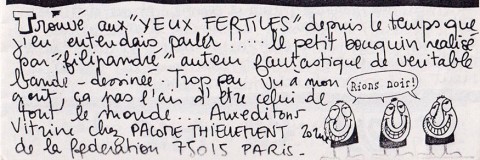 Trouvé aux "YEUX FERTILES" depuis le temps que
j'en entendais parler ..... le petit bouquin realisé
par "filipandré" auteur fantastique de veritable
bande-dessinée. Trop peu vu à mon
gout, ça pas l'air d'être celui de
tout le monde... Aux editons
Vitrine chez PACÔME THIELLEMENT
de la federation 75015 PARIS-
Rions noir!